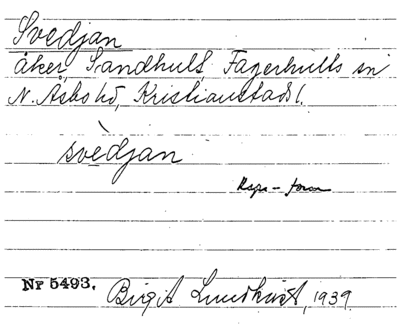 Svedjan
åker, Sandhult, Fagerhults sn
N. Åsbo hd, Kristianstads l.
svèdjan
Rspr-form
Nr 5493. Birgit Lundkvist, 1939